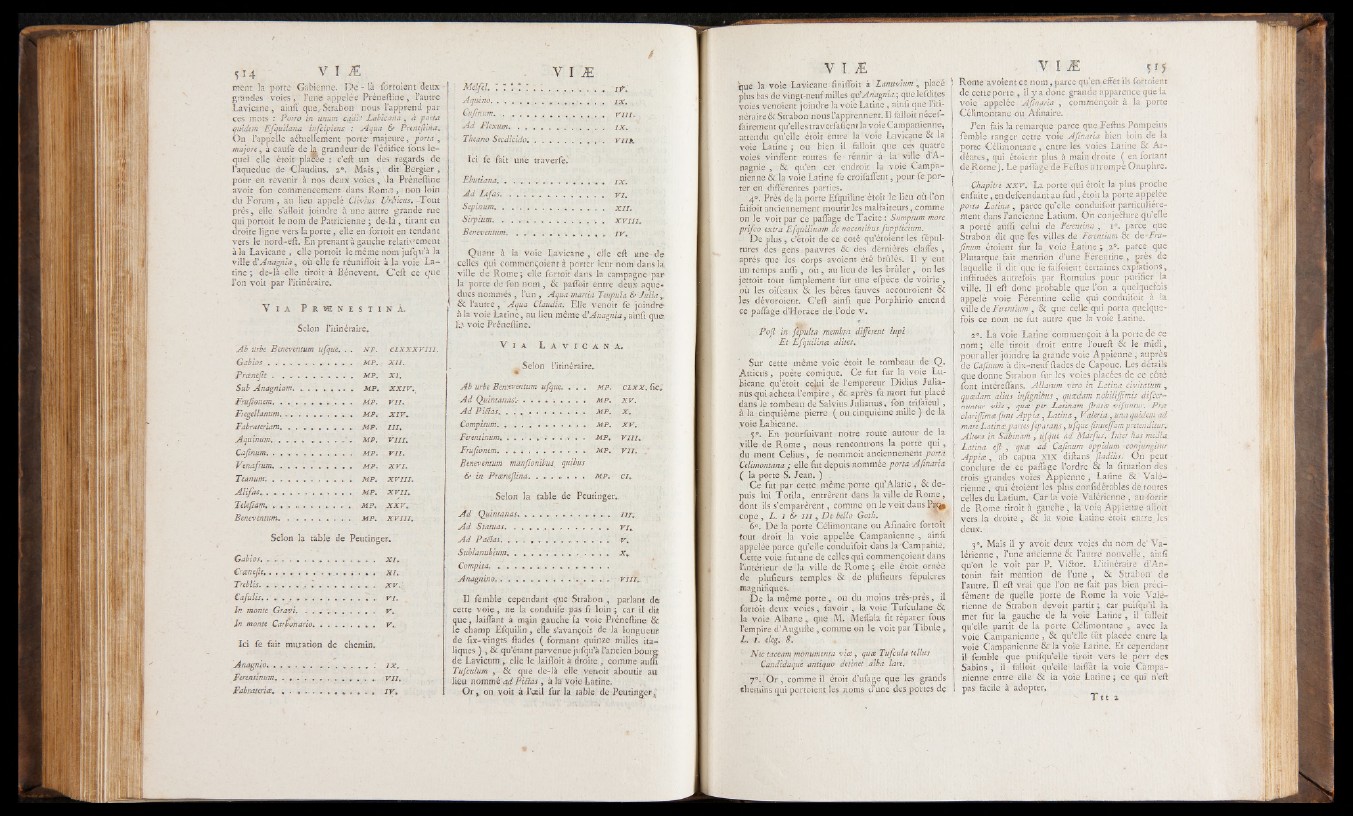 514 V I Æ
ment la porte Gabienne. De-là sortoient deux
grandes voies, l'une appelée Préneftine, l'autre
Lavicane, ainfi que Strabon nous l'apprend par
ces mots : Porro in unum Labicana, à porta
quâdam Efquilana
On l'appelle actuellement porte majeure, porta
majore, à caufe de la grandeur de l'édifice fous le-
quel elle étoit placée : c'eft un des regards de
l'aqueduc de Claudius. 2°. Mais, dit Bergier,
pour en revenir à nos deux voies, la Préneftine
avoit fon commencement dans Roma, non loin
du Forum, au lieu appelé Clivius Urbicus. Tout
près, elle s'alloit joindre à une autre grande rue
qui portoit le nom de Patricienne ; de-là, tirant en
droite ligne vers la porte, elle en fortoit en tendant
vers le nord-eft. En prenant à gauche relativement
à la Lavicane, elle portoit le même nom jufqu'à la
ville d'Anagnia, où elle fe réuniffoit à la voie La-
tine ; de-là elle tiroit à Bénevent. C'eft ce que
l'on voit par l'itinéraire.
VIA PRÆNESTINA.
Selon l'itinéraire.
Ab urbe Beneventum ufque. . . NP. CLXXXVIII.
Gabios . . . . . . . . . . . MP. XII.
Præneste . . . . . . . . . . MP. XI.
Sub Anagniam. . . . . . . . . MP. XXIV.
Frufionem. . . . . . . . . . MP. VII.
Fregellanum. . . . . . . . . . MP. XIV.
Fabrateriam. . . . . . . . . . MP. III.
Aquinum. . . . . . . . . . . MP. VIII.
Cafinum. . . . . . . . . . . MP. VII.
Venafrum. . . . . . . . . . . MP. XVI.
Teanum. . . . . . . . . . . MP. XVIII.
Alifas. . . . . . . . . . . . MP. XVII.
Telefiam. . . . . . . . . . . MP. XXV.
Beneventum. . . . . . . . . . MP. XVIII.
Selon la table de Peutinger.
Gabios. . . . . . . . . . . . . XI.
Præneste. . . . . . . . . . . . XI.
Treblis. . . . . . . . . . . . XV.
Cafulis. . . . . . . . . . . . VI.
In monte Gravi. . . . . . . . . V.
In monte Carbonario. . . . . . . . V.
Ici fe fait mutation de chemin.
Anagnio. . . . . . . . . . . . IX.
Ferentinum. . . . . . . . . . . VII.
Fabrateriæ. . . . . . . . . . . IV.
V I Æ
Melfel. . . . . . . . . . . . . IV.
Aquino. . . . . . . . . . . . . IX.
Cafinum. . . . . . . . . . . . VIII.
Ad Flexum. . . . . . . . . . . IX.
Theano Scedicino. . . . . . . . . VIII.
Ici fe fait une traverfe.
Ebutiana. . . . . . . . . . . . IX.
Ad Lefas. . . . . . . . . . . . VI.
Sepinum. . . . . . . . . . . . XII.
Sirpium. . . . . . . . . . . . XVIII.
Beneventum. . . . . . . . . . . IV.
Quant à la voie Lavicane, elle eft une de
celles qui commençoient à porter leur nom dans la
ville de Rome ; elle fortoit dans la campagne par
la porte de fon nom, & paffoit entre deux aque-
ducs nommés, l'un, Aqua martia Tepula & Julia,
& l'autre, Aqua Claudia. Elle venoit fe joindre
à la voie Latine, au lieu même d'Anagnia, ainfi que
la voie Préneftine.
VIA LAVICANA.
Selon l'itinéraire.
Ab urbe Beneventum ufque. . . . MP. CLXX, fic.
Ad Quintanas. . . . . . . . . MP. XV.
Ad Pictas. . . . . . . . . . . MP. X.
Compitum. . . . . . . . . . . MP. XV.
Ferentinum. . . . . . . . . . MP. VIII.
Frufionem. . . . . . . . . . . MP. VII.
Beneventum manfionibus, quibus
& in Præneftina. . . . . . . . MP. CI.
Selon la table de Peutinger.
Ad Quintanas. . . . . . . . . . III.
Ad Statuas. . . . . . . . . . . VI.
Ad Pactas. . . . . . . . . . . . V.
Sublanubium. . . . . . . . . . . X.
Compita. . . . . . . . . . . .
Anagnino. . . . . . . . . . . . VIII.
Il femble cependant que Strabon, parlant de
cette voie, ne la conduife pas fi loin ; car il dit
que, laiffant à main gauche la voie Préneftine &
le champ Efquilin, elle s'avançoit de la longueur
de fix-vingts ftades ( formant quinze milles ita-
liques ), & qu'étant parvenue jufqu'à l'ancien bourg
de Lavicum, elle le laiffoit à droite, comme auffi
Tufculum, & que de-là elle venoit aboutir au
lieu nommé ad Pictas, à la voie Latine.
Or, on voit à l'œil fur la table de Peutinger,
V I Æ
que la voie Lavicane finiffoit à Lanuvium, placé
plus bas de vingt-neuf milles qu'Anagnia ; que lefdites
voies venoient joindre la voie Latine, ainfi que l'iti-
néraire & Strabon nous l'apprennent. Il falloit nécef-
fairement qu'elles traverfaffent la voie Campanienne,
attendu qu'elle étoit entre la voie Lavicane & la
voie Latine ; ou bien il falloit que ces quatre
voies vinffent toutes fe réunir à la ville d'A-
nagnie, & qu'en cet endroit la voie Campa-
nienne & la voie Latine fe croifaffent, pour fe por-
ter en différentes parties.
4°. Près de la porte Efquiline étoit le lieu où l'on
faifoit anciennement mourir les malfaiteurs, comme
on le voit par ce paffage de Tacite : Sumptum more
prifco extra Efquilinam de nocentibus fupplicium.
De plus, c'étoit de ce côté qu'étoient les fépul-
tures des gens pauvres & des dernières claffes,
après que les corps avoient été brûlés. Il y eut
un temps auffi, où, au lieu de les brûler, on les
jettoit tout fimplement fur une efpèce de voirie,
où les oifeaux & les bêtes fauves accouroient &
les dévoroient. C'eft ainfi que Porphirio entend
ce paffage d'Horace de l'ode v.
Poft in fepulta membra different lupi
Et Efquilinæ alites.
Sur cette même voie étoit le tombeau de Q.
Atticus, poëte comique. Ce fut fur la voie La-
bicane qu'étoit celui de l'empereur Didius Julia-
nus qui acheta l'empire, & après fa mort fut placé
dans le tombeau de Salvius Julianus, fon trifaïeul,
à la cinquième pierre ( ou cinquième mille ) de la
voie Labicane.
5°. En pourfuivant notre route autour de la
ville de Rome, nous rencontrons la porte qui,
du mont Celius, fe nommoit anciennement porta
Celimontana ; elle fut depuis nommée porta Afinaria
( la porte S. Jean. )
Ce fut par cette même porte qu'Alaric, & de-
puis lui Totila, entrèrent dans la ville de Rome,
dont ils s'emparèrent, comme on le voit dans Pro-
cope, L. I & III, De bello Goth.
6°. De la porte Célimontane ou Afinaire fortoit
tout droit la voie appelée Campanienne, ainfi
appelée parce qu'elle conduifoit dans la Campanie.
Cette voie fut une de celles qui commençoient dans
l'intérieur de la ville de Rome ; elle étoit ornée
de plufieurs temples & de plufieurs fépulcres
magnifiques.
De la même porte, ou du moins très-près, il
fortoit deux voies, favoir, la voie Tufculane &
la voie Albane, que M. Meffala fit réparer fous
l'empire d'Augufte, comme on le voit par Tibule,
L. I. eleg. 8.
Nec taceam monumenta viæ, quæ Tufcula tellus
Candidaque antiquo detinet alba lare.
7°. Or, comme il étoit d'ufage que les grands
chemins qui portoient les noms d'une des portes de
V I Æ 515
Rome avoient ce nom, parce qu'en effet ils fortoient
de cette porte, il y a donc grande apparence que la
voie appelée Afinaria, commençoit à la porte
Célimontane ou Afinaire.
J'en fais la remarque parce que Feftus Pompeius
femble ranger cette voie Afinaria bien loin de la
porte Célimontane, entre les voies Latine & Ar-
déates, qui étoient plus à main droite ( en fortant
de Rome ). Le paffage de Feftus a trompé Onuphre.
Chapitre XXV. La porte qui étoit la plus proche
enfuite, en defcendant au fud, étoit la porte appelée
porta Latina, parce qu'elle conduifoit particulière-
ment dans l'ancienne Latium. On conjecture qu'elle
a porté auffi celui de Ferentina, 1°. parce que
Strabon dit que les villes de Ferentium & de Fru-
finum étoient fur la voie Latine ; 2°. parce que
Plutarque fait mention d'une Férentine, près de
laquelle il dit que fe faifoient certaines expiations,
inftituées autrefois par Romulus pour purifier la
ville. Il eft donc probable que l'on a quelquefois
appelé voie Férentine celle qui conduifoit à la
ville de Ferentium, & que celle qui porta quelque-
fois ce nom ne fut autre que la voie Latine.
2°. La voie Latine commençoit à la porte de ce
nom ; elle tiroit droit entre l'oueft & le midi,
pour aller joindre la grande voie Appienne, auprès
de Cafinum à dix-neuf ftades de Capoue. Les détails
que donne Strabon fur les voies placées de ce côté
font intéreffans. Aliarum vero in Latina civitatum,
quædam aliis infignibus, quædam nobiliffimis difcer-
nuntur viis, quæ per Latinam ftratæ vifuntur. Viæ
clariffimæ funt Appia, Latina, Valeria, una quidem ad
mare Latinæ partes feparans, ufque Sinueffam protenditur,
Altera in Sabinam, ufque ad Marfos. Inter has media
Latina eft, quæ ad Cafinum oppidum conjungitur
Appiæ, ab capua XIX diftans ftadiis. On peut
conclure de ce paffage l'ordre & la fituation des
trois grandes voies Appienne, Latine & Valé-
rienne, qui étoient les plus confidérables de toutes
celles du Latium. Car la voie Valérienne, au fortir
de Rome tiroit à gauche, la voie Appienne alloit
vers la droite, & la voie Latine étoit entre les
deux.
3°. Mais il y avoit deux voies du nom de Va-
lérienne, l'une ancienne & l'autre nouvelle, ainfi
qu'on le voit par P. Victor. L'itinéraire d'An-
tonin fait mention de l'une, & Strabon de
l'autre. Il eft vrai que l'on ne fait pas bien préci-
fément de quelle porte de Rome la voie Valé-
rienne de Strabon devoit partir ; car puifqu'il la
met fur la gauche de la voie Latine, il falloit
qu'elle partît de la porte Célimontane, avec la
voie Campanienne, & qu'elle fût placée entre la
voie Campanienne & la voie Latine. Et cependant
il femble que puifqu'elle tiroit vers le port des
Sabins, il falloit qu'elle laiffât la voie Campa-
nienne entre elle & la voie Latine ; ce qui n'eft
pas facile à adopter.
Ttt 2